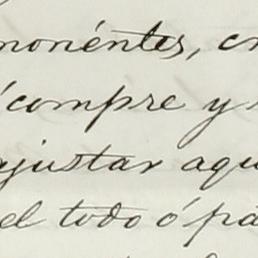 monéntes, cr
compre y
ajustar aqu
el todo ó pa